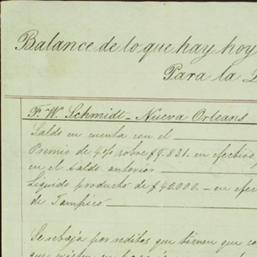 Balance de lo que hay hoy
Para la
F. W. Schmidt - Nueva Orleans
Saldo en cuenta con el
Premio de 4% sobre £9.831. en efectivo
en el saldo anterior
Líquido producto de £42000. - en efec
de Tampico
Se rebaja por reditos que tienen que